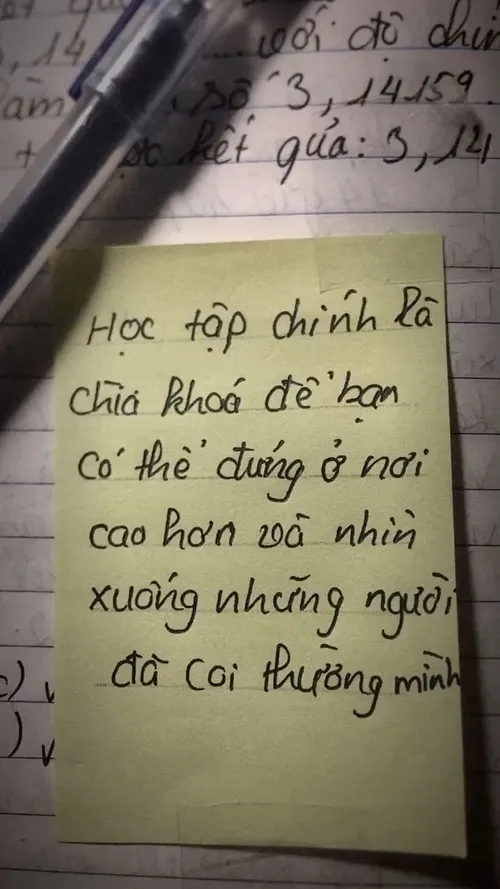 với độ chín
số 3,14159.
kết qủa: 3,14
Học tập chính là
chìa khoá để bạn
có thể đứng ở nơi
cao hơn và nhìn
xuống những người
đã coi thường mình
c) v
) v